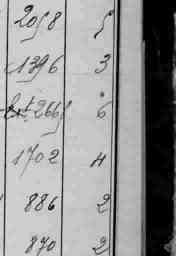 2058 5
1396 3
266 6
1702 4
886 2
870 2